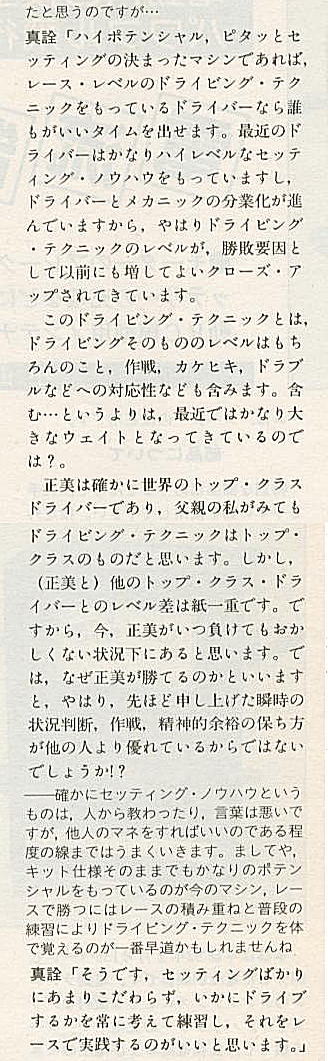 たと思うのですが…
真詮「ハイポテンシャル，ピタッとセ
ッティングの決まったマシンであれば，
レース・レベルのドライビング・テク
ニックをもっているドライバーなら誰
もがいいタイムを出せます。最近のド
ライバーはかなりハイレベルなセッテ
ィング・ノウハウをもっていますし，
ドライバーとメカニックの分業化が進
んでいますから，やはりドライビング
・テクニックのレベルが，勝敗要因と
して以前にも増してよいクローズ・ア
ップされてきています。
　このドライビング・テクニックとは，
ドライビングそのもののレベルはもち
ろんのこと，作戦，カケヒキ，ドラブ
ルなどへの対応性なども含みます。含
む…というよりは，最近ではかなり大
きなウェイトとなってきているので
は？。
　正美は確かに世界のトップ・クラス
ドライバーであり，父親の私がみても
ドライビング・テクニックはトップ・
クラスのものだと思います。しかし，
（正美と）他のトップ・クラス・ドラ
イバーとのレベル差は紙一重です。で
すから，今，正美がいつ負けてもおか
しくない状況下にあると思います。で
は，なぜ正美が勝てるのかといいます
と，やはり，先ほど申し上げた瞬時の
状況判断，作戦，精神的余裕の保ち方
が他の人より優れているからではない
でしょうか!？
――確かにセッティング・ノウハウという
ものは，人から教わったり，言葉は悪いで
すが，他人のマネをすればいいのである程
度の線まではうまくいきます。ましてや，
キット仕様そのままでもかなりのポテン
シャルをもっているのが今のマシン，レー
スで勝つにはレースの積み重ねと普段の
練習によりドライビング・テクニックを体
で覚えるのが一番早道かもしれませんね
真詮「そうです，セッティングばかり
にあまりこだわらず，いかにドライブ
するかを常に考えて練習し，それをレ
ースで実践するのがいいと思います。」